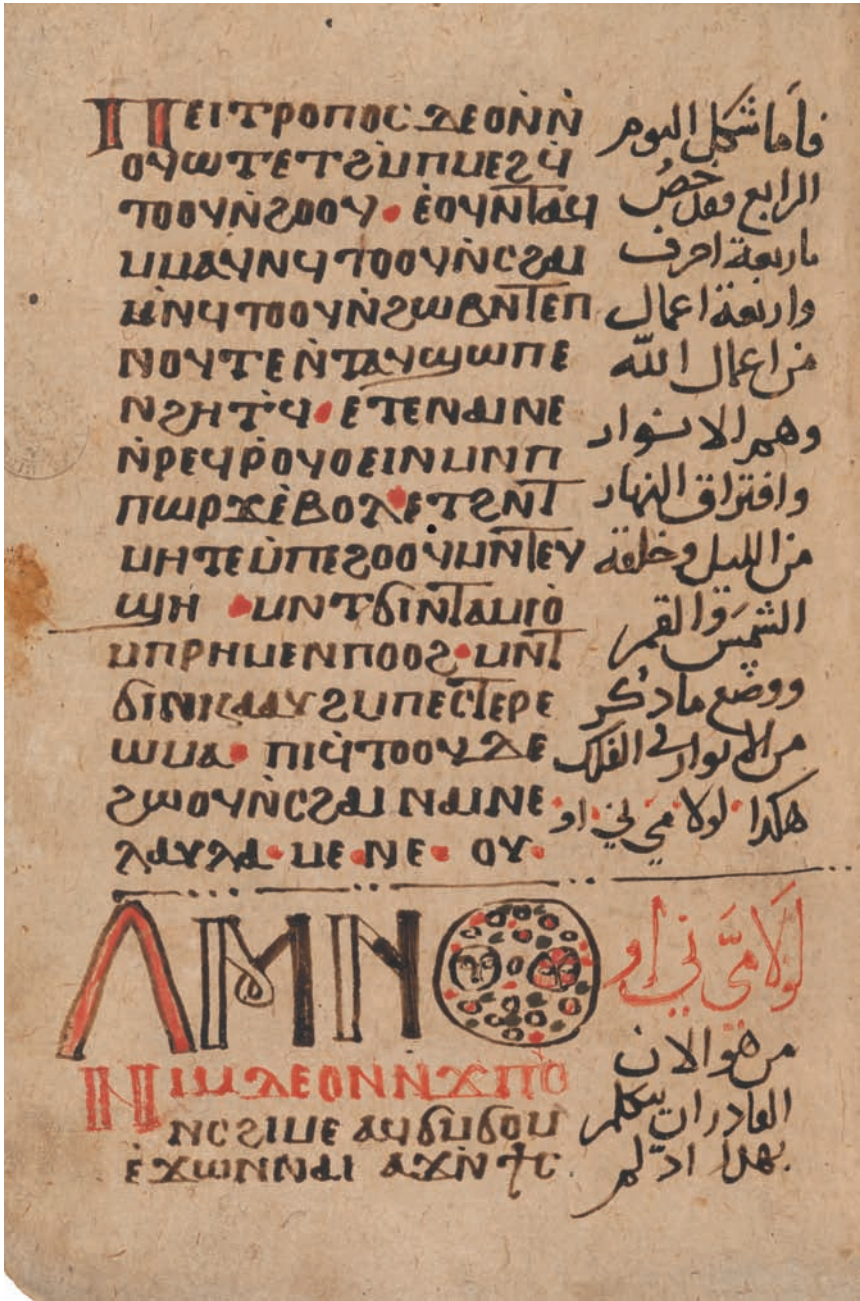 Ⲡⲉⲓⲧⲣⲟⲡⲟⲥⲇⲉⲟⲛ̀ⲛ̀
ⲟⲩⲱⲧⲉⲧϩⲙⲡⲙⲉϩϥ̀
ⲧⲟⲟⲩⲛ̀ϩⲟⲟⲩ· ⲉ̀ⲟⲩⲛⲧⲁϥ
ⲙⲙⲁⲩⲛϥⲧⲟⲟⲩⲛ̀ⲥϩⲁⲓ
ⲙⲛ̀ϥⲧⲟⲟⲩⲛ̀ϩⲱⲃⲛⲧⲉⲡ
ⲛⲟⲩⲧⲉⲛ̀ⲧⲁⲩϣⲱⲡⲉ
ⲛϩⲏⲧϥ̀· ⲉⲧⲉⲛⲁⲓⲛⲉ
ⲛ̀ⲣⲉϥⲣ̀ⲟⲩⲟⲉⲓⲛⲙⲛⲡ
ⲡⲱⲣϫⲉ̀ⲃⲟⲗ·ⲉⲧϩⲛⲧ
ⲙⲏⲧⲉⲙ̀ⲡⲉϩⲟⲟⲩⲙⲛⲧⲉⲩ
ϣⲏ ·ⲙⲛⲧϭⲓⲛⲧⲁⲙⲓⲟ̀
ⲙⲡⲣⲏⲙⲉⲛⲡⲟⲟϩ·ⲙⲛⲧ
ϭⲓⲛⲕⲁⲁⲩϩⲙⲡⲉⲥⲧⲉⲣⲉ
ⲱⲙⲁ· ⲡⲓϥ̀ⲧⲟⲟⲩⲇⲉ
ϩⲱⲟⲩⲛ̀ⲥϩⲁⲓ ⲛⲁⲓⲛⲉ·
ⲗⲁⲩⲗⲁ·ⲙⲉ·ⲛⲉ· ⲟⲩ·
فأما شكل اليوم
الرابع فقد خصُ
باربعة احرف
واربعة اعمال
من اعمال الله
وهم الانوار
وافتراق النهار
من الليل وخلقة
الشمس والقمر
ووضع ما ذكر
من الانوار في الفلك
هكذا· لولا· مي· ني· او·
ⲖⲘⲚⲞ
لولَا مَّى نى او
Ⲛⲓⲙⲇⲉⲟⲛⲛϫⲡⲟ̀
ⲛⲥϩⲓⲙⲉ ⲁϥϭⲙϭⲟⲙ
ⲉ̀ϫⲱⲛⲛⲁⲓ ⲁϫⲛ
من هو الان
القادران يتكلم
بهذا اذ لم